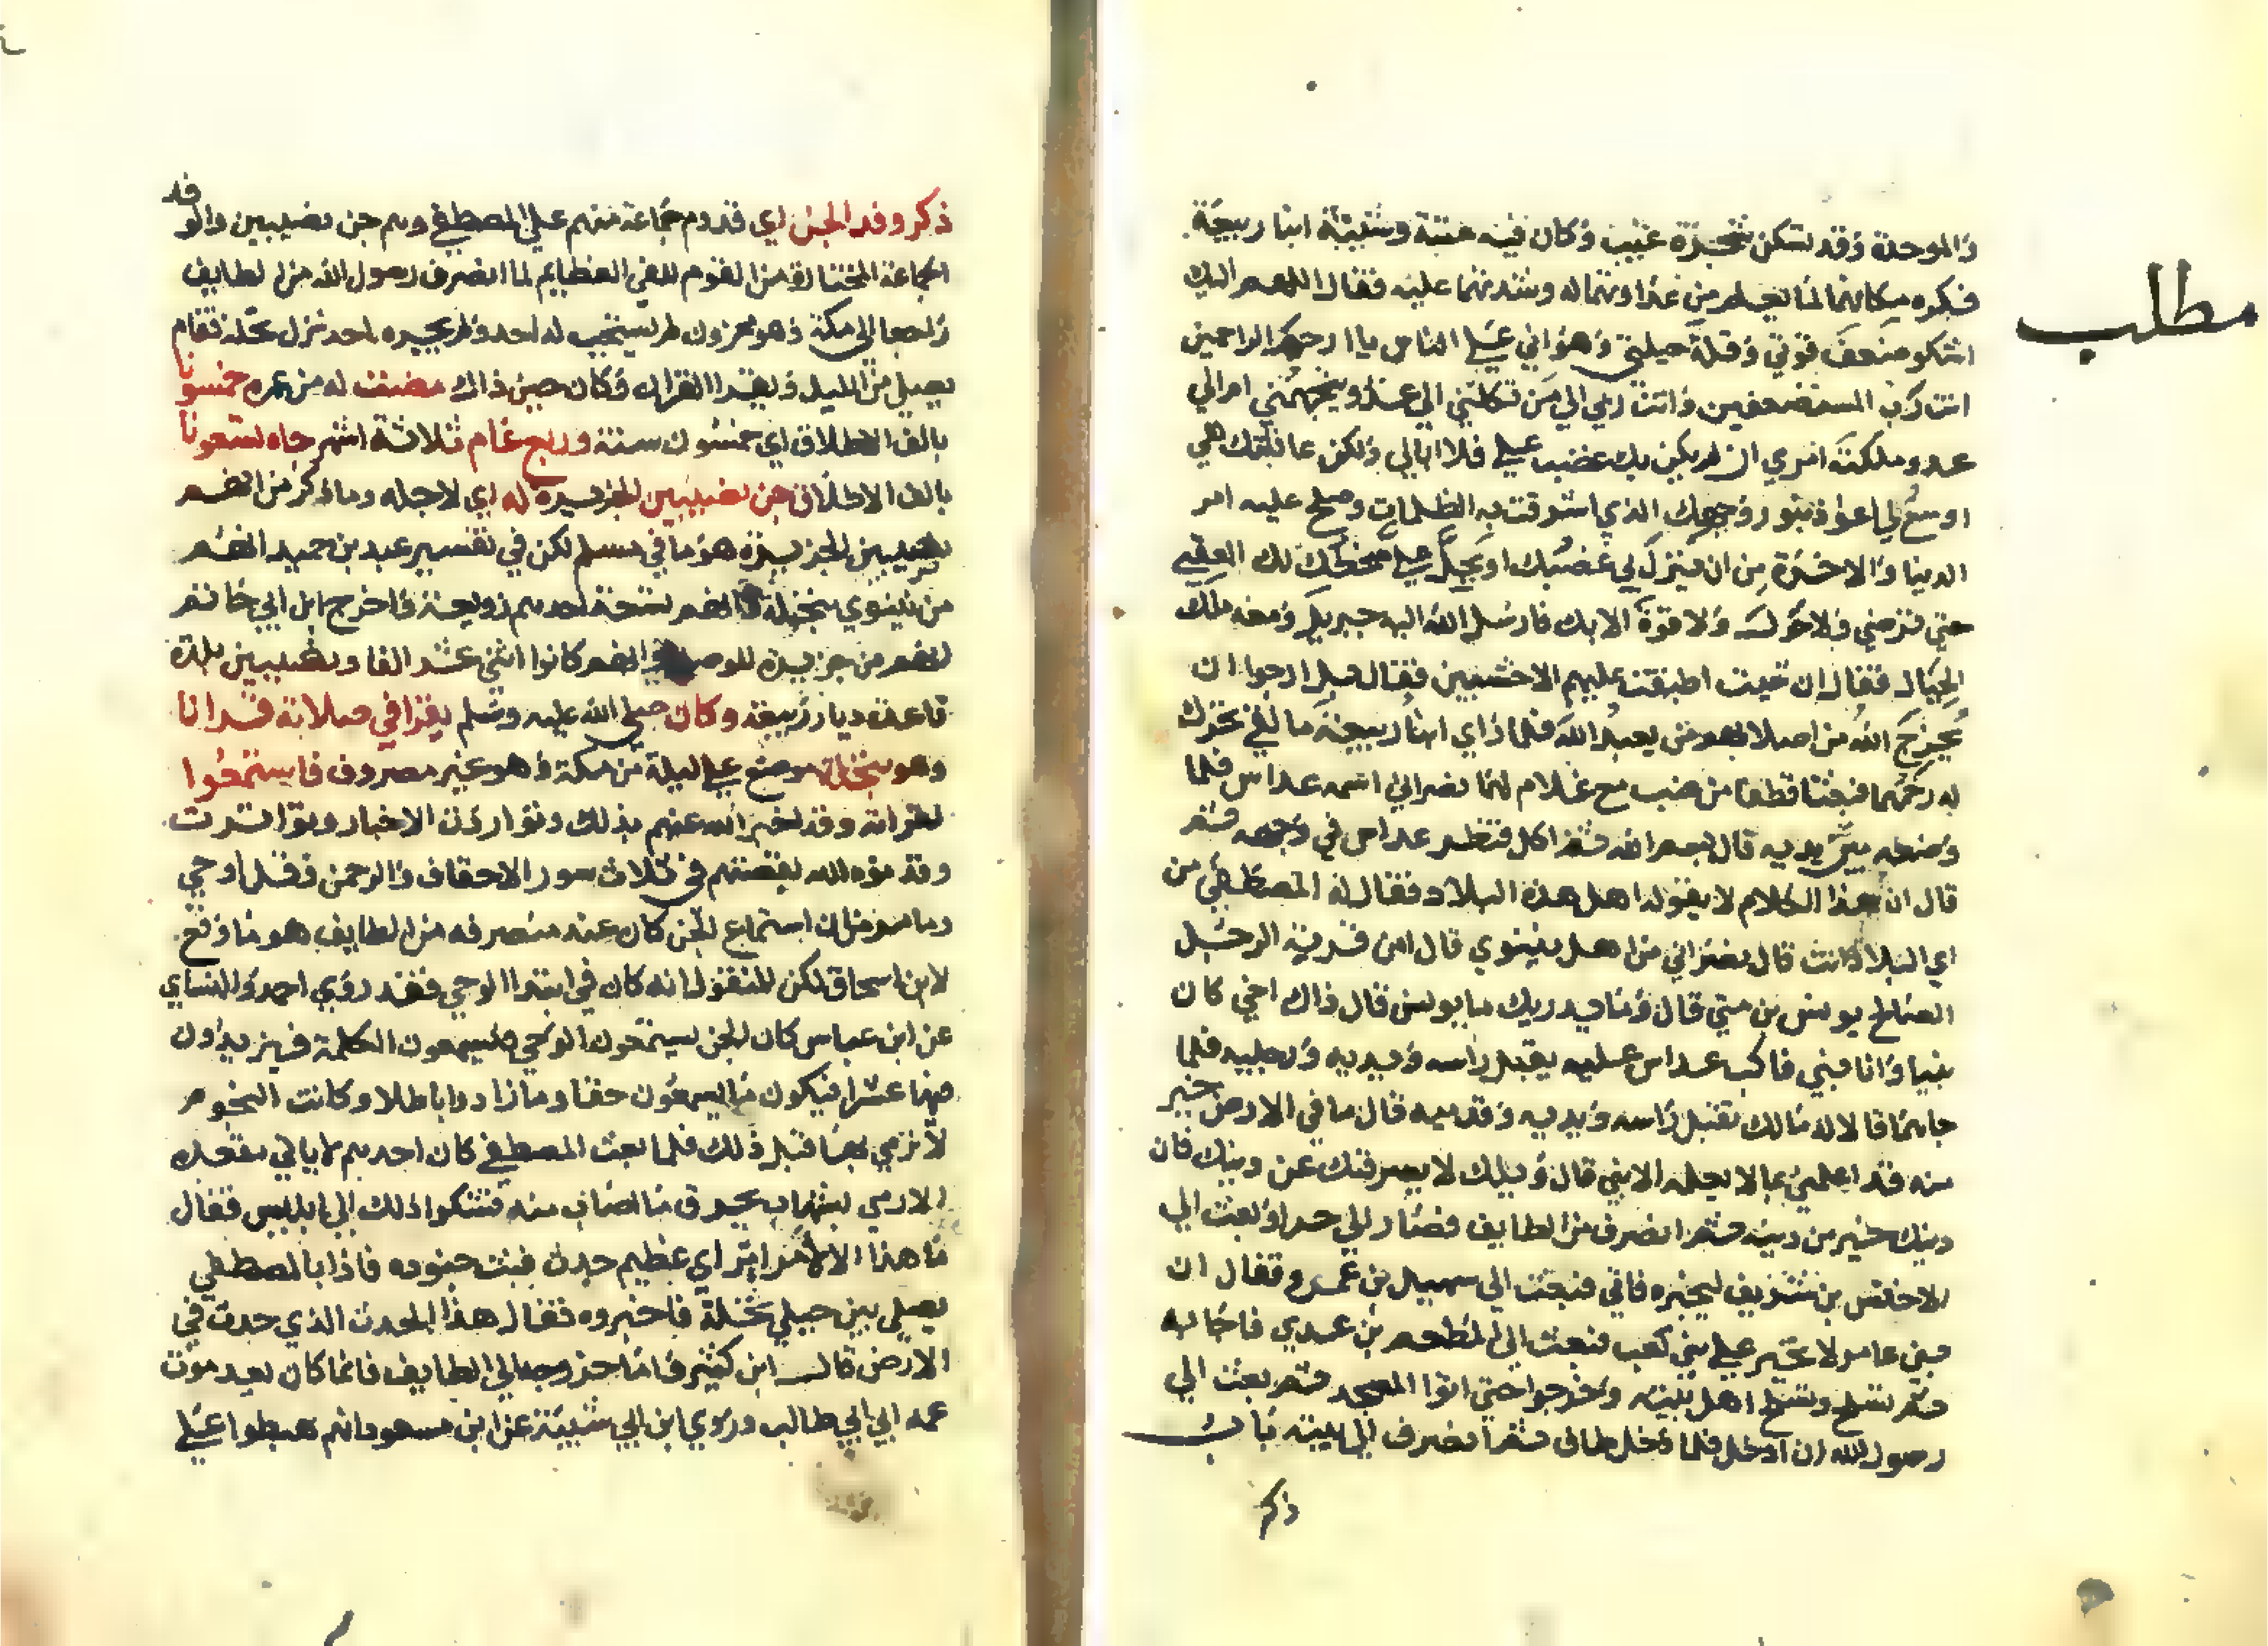 والموحدة وقد تسكن شجرة عنب وكان فيه عتبة وشيبة ابنا ربيعة
فكره مكانهما لما يعلم من عداوتهما له وشدتهما عليه فقال اللهم اليك
اشكو ضعف قوتي وقلة حيلتي وهواني علي الناس يا ارحم الراحمين
انت رب المستضعفين وانت ربي الي من تكلني الي عدو يتجهمني ام الي
عدو ملكته امري ان لم يكن بك غضب علي فلا ابالي ولكن عافيتك هي
اوسع لي اعوذ بنور وجهك الذي اشرقت به الظلمات وصلح عليه امر
الدنيا والاخرة من ان ينزل لي غضبك او يحل علي سخطك لك العتبي
حتي ترضي ولا حول ولا قوة الا بك فارسل الله اليه جبريل ومعه ملك
الجبال فقال ان شيت اطبقت عليهم الاخشبين فقال بل ارجوا ان
يخرج الله من اصلابهم من يعبد الله فلما راي ابنا ربيعة ما لقي تحرك
له رحمهما فبعثا قطفا من عنب مع غلام لهما نصراني اسمه عداس فلما
وضعه بين يديه قال بسم الله ثم اكل فنظر عداس في وجهه ثم
قال ان هذا الكلام لا يقوله اهل هذه البلاد فقال له المصطفي من
اي البلاد انت قال نصراني من اهل نينوي قال امن قرية الرجل
الصالح يونس بن متي قال وما يدريك ما يونس قال ذاك اخي كان
نبيا وانا نبي فاكب عداس عليه يقبل راسه ويديه ورجليه فلما
جاهما قالا له مالك تقبل راسه ويديه وقدميه قال ما في الارض خير
منه قد اعلمني بما لا يعلمه الا نبي قال ويلك لا يصرفنك عن دينك فان
دينك خير من دينه ثم انصرف من الطايف فصار الي حرا وبعث الي
الاخنس بن شريف ليجيره فابي فبعث الي سهيل بن عمرو فقال ان
بني عامر لا تجير علي بني كعب فبعث الي المطعم بن عدي فاجابه
ثم تسلح وتسلح اهل بيته وخرجوا حتي اتوا المسجد ثم بعث الي
رسول الله ان ادخل فلما دخل طاف ثم انصرف الي بيته باب
ذكر
مطلب
ذكر وفد الجن اي قدوم جماعة منهم علي المصطفي وهم جن نصيبين والوفد
الجماعة المختارة من القوم للقي العظايم لما انصرف رسول الله من الطايف
راجعا الي مكة وهو محزون لم يستجب له احد ولم يجيره احد نزل نخلة فقام
يصلي من الليل ويقرا القران وكان حين ذاك مضت له من عمره خمسونا
بالف الاطلاق اي خمسون سنة وربع عام ثلاثة اشهر جاه يستعونا
بالف الاطلاق جن نصيبين الجزيرة له اي لاجله وما ذكر من انهم
نصيبين الجزيرة هو ما في مسلم لكن في تفسير عبد بن حميد انهم
من نينوي بنخلة وانهم تسعة احدهم زوبعة واخرج ابن ابي حاتم
انهم من جزيرة الموصل وانهم كانوا اثني عشر الفا ونصيبين بلدة
قاعدة ديار ربيعة وكان صلي الله عليه وسلم يقرا في صلاته قرانا
وهو بنخلة موضع علي ليلة من مكة وهو غير مصروف فاستمعوا
لقرانه وقد اخبر الله عنهم بذلك وتواردت الاخبار وتواترت
وقد نوه الله بقصتهم في ثلاث سور الاحقاف والرحمن وقل اوحي
وما مر من ان استماع الجن كان عند منصرفه من الطايف هو ما وقع
لابن اسحاق لكن المنقول انه كان في ابتدا الوحي فقد روي احمد والنساي
عن ابن عباس كان الجن يستمعون الوحي فيسمعون الكلمة فيزيدون
فيها عشرا فيكون ما يسمعون حقا وما زادوا باطلا وكانت النجوم
لا ترمي بها قبل ذلك فلما بعث المصطفي كان احدهم لا ياتي مقعده
الا رمي بشهاب يحرق ما اصاب منه فشكوا ذلك الي ابليس فقال
ما هذا الا لامر امر اي عظيم حدث فبث جنوده فاذا بالمصطفي
يصلي بين جبلي نخلة فاخبروه فقال هذا الحدث الذي حدث في
الارض قال ابن كثير واما خروجه الي الطايف فانما كان بعد موت
عمه ابي طالب وروي ابن ابي شيبة عن ابن مسعود انهم هبطوا علي